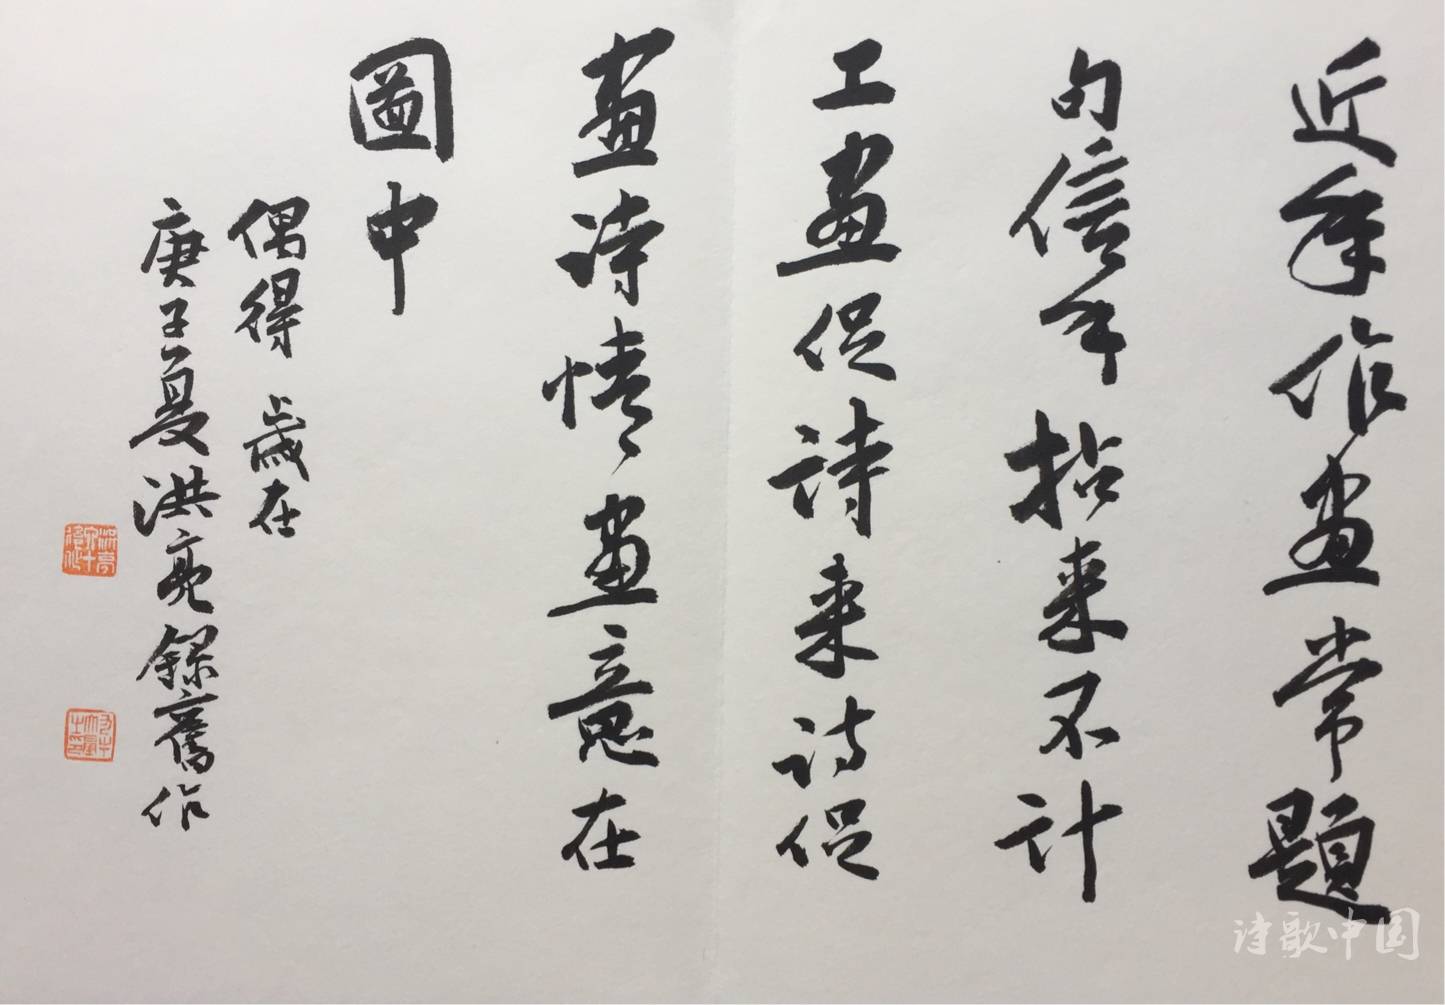 近年作画常題
句信手拈来不计
工畫促詩来诗促
畫诗情畫意在
圖中
偶得 歲在
庚子夏洪亮錄舊作
诗歌中国